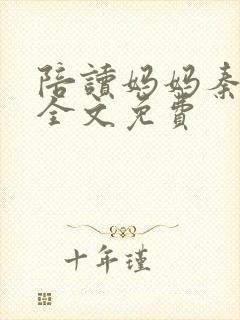 陪讀媽媽秦
全文免費
十年瑾